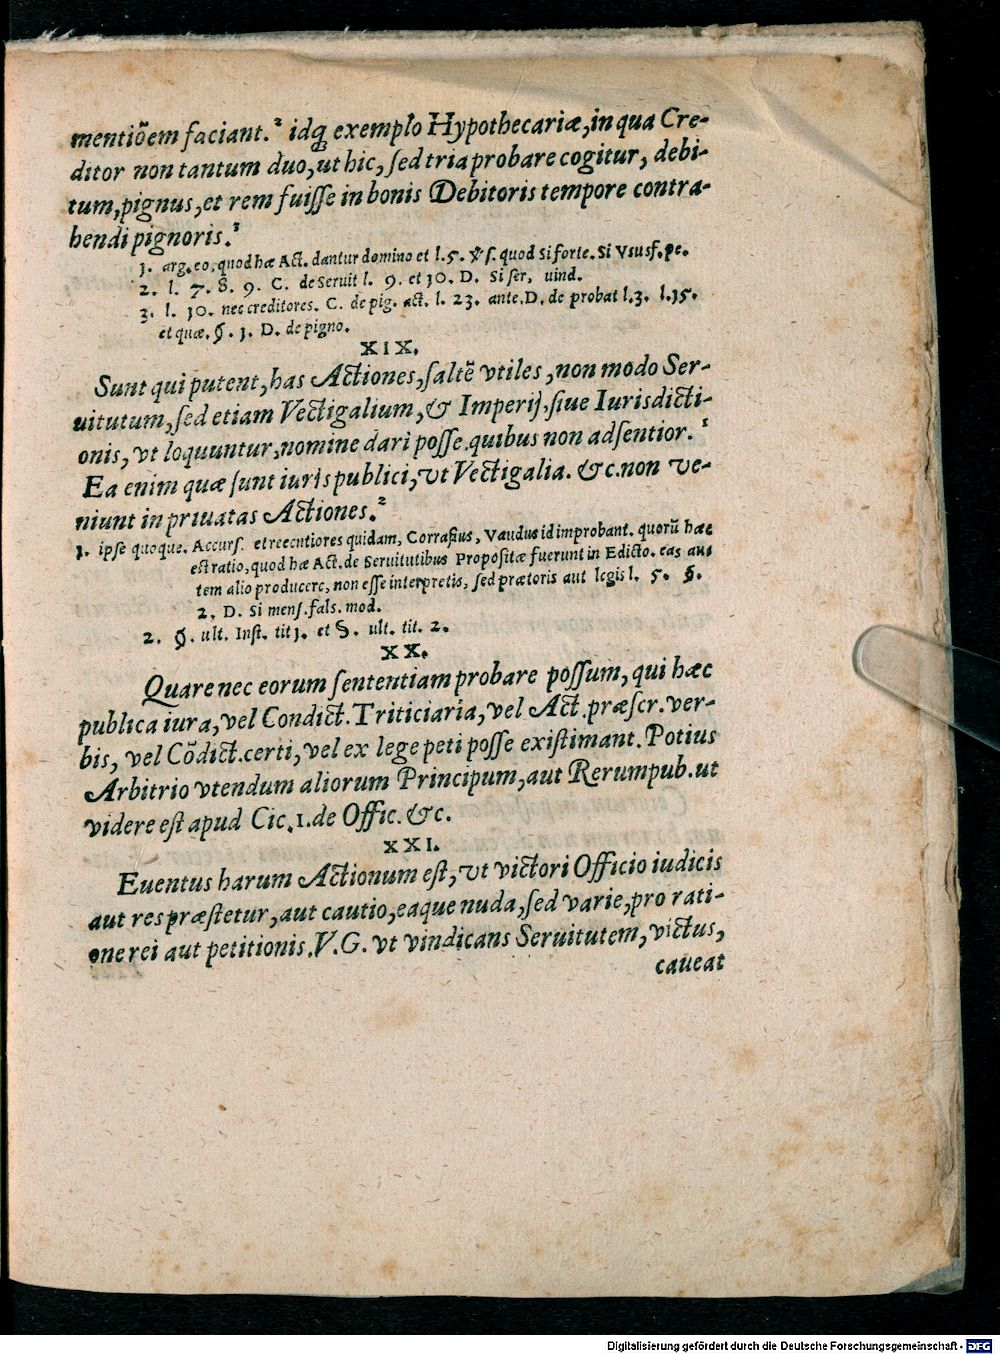 mentiõem faciant.² idq́ꝫ exemplo Hypothecariæ, in qua Cre-
ditor non tantum duo, ut hic, ſed tria probare cogitur, debi-
tum, pignus, et rem fuiſſe in bonis Debitoris tempore contra-
hendi pignoris.³
1. arg. eo, quod hæ Act. dantur domino et l. 5. ſ. quod si forte. Si Vsusf. pe.
2. l. 7. 8. 9. C. de Seruit l. 9. et 10. D. Si ſer, uind.
3. l. 10. nec creditores. C. de pig. act. l. 23. ante. D. de probat l. 3. l. 15.
et quæ. §. 1. D. de pigno.
XIX.
Sunt qui putent, has Actiones, ſaltẽ vtiles, non modo Ser-
uitutum, ſed etiam Vectigalium, & Imperij, ſiue Iurisdicti-
onis, vt loquuntur, nomine dari poſſe. quibus non adſentior.¹
Ea enim quæ ſunt iuris publici, vt Vectigalia. &c. non ve-
niunt in priuatas Actiones.²
1. ipſe quoque. Accurſ. et recentiores quidam, Corraſius, Vaudus id improbant. quorũ hæc
eſt ratio, quod hæ Act. de Seruitutibus Propoſitæ fuerunt in Edicto. eas aut
tem alio producere, non eſſe interpretis, ſed prætoris aut legis l. 5. §.
2. D. Si menſ. falſ. mod.
2. §. ult. Inſt. tit 1. et §. ult. tit. 2.
XX.
Quare nec eorum ſententiam probare poſſum, qui hæc
publica iura, vel Condict. Triticiaria, vel Act. præſcr. ver-
bis, vel Cõdict. certi, vel ex lege peti poſſe exiſtimant. Potius
Arbitrio vtendum aliorum Principum, aut Rerumpub. ut
videre eſt apud Cic. 1. de Offic. &c.
XXI.
Euentus harum Actionum eſt, vt victori Officio iudicis
aut res præſtetur, aut cautio, eaque nuda, ſed varie, pro rati-
one rei aut petitionis. V. G. vt vindicans Seruitutem, victus,
caueat
Digitalisierung gefördert durch die Deutsche Forschungsgemeinschaft - DFG